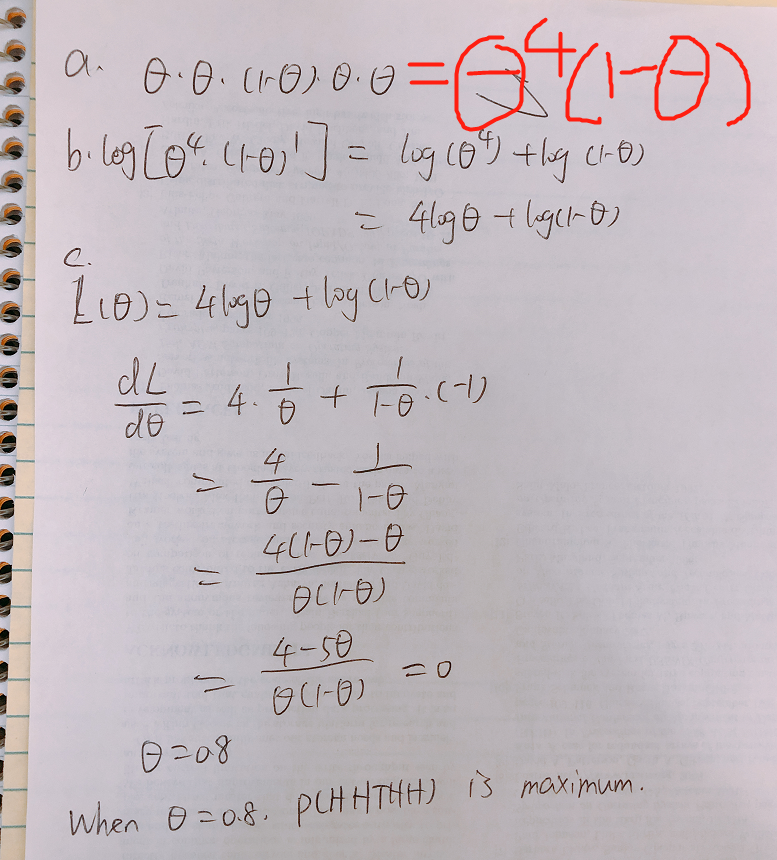 a. θ·θ·(1-θ)·θ·θ = θ⁴(1-θ)
b. log[θ⁴·(1-θ)¹] = log(θ⁴) + log(1-θ)
= 4logθ + log(1-θ)
c.
L(θ) = 4logθ + log(1-θ)
dL/dθ = 4·1/θ + 1/(1-θ)·(-1)
= 4/θ - 1/(1-θ)
= (4(1-θ)-θ)/(θ(1-θ))
= (4-5θ)/(θ(1-θ)) = 0
θ = 0.8
When θ = 0.8, P(HHTHH) is maximum.